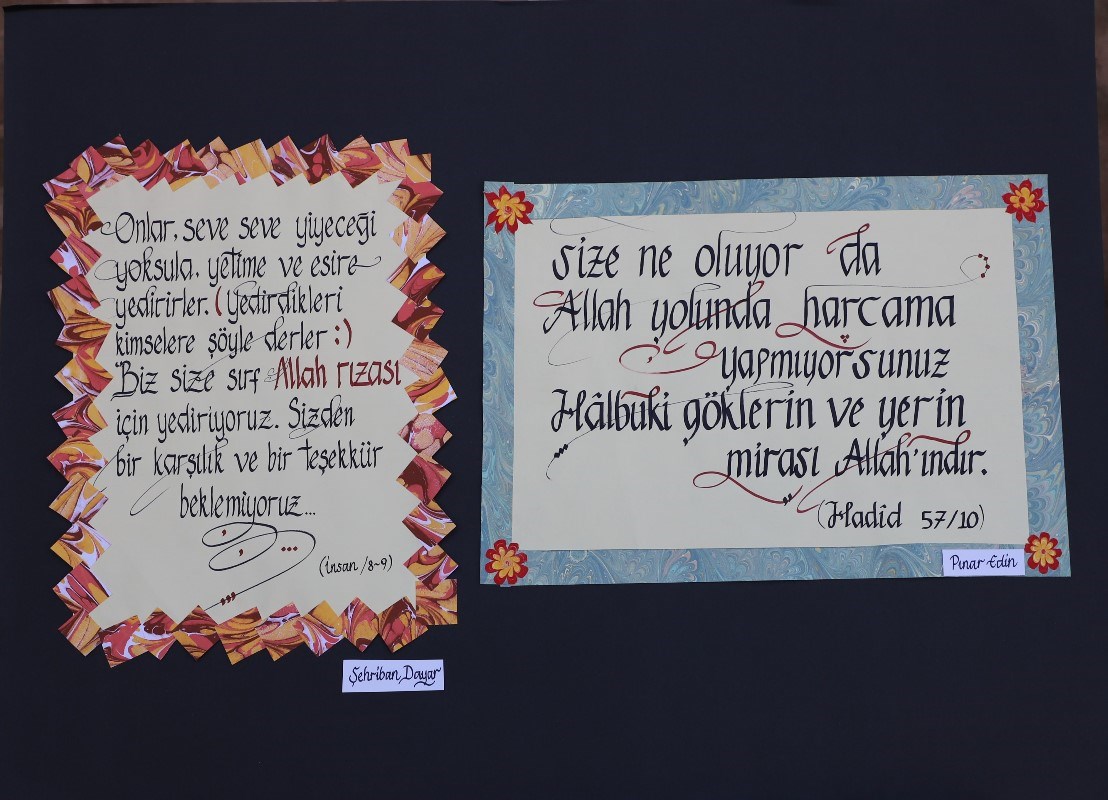 Onlar, seve seve yiyeceği
yoksula, yetime ve esire
yedirirler. (Yedirdikleri
kimselere şöyle derler :)
"Biz size sırf Allah rızası
için yediriyoruz. Sizden
bir karşılık ve bir teşekkür
beklemiyoruz...
(İnsan /8~9)
Şehriban Dayar
Size ne oluyor da
Allah yolunda harcama
yapmıyorsunuz
Hâlbuki göklerin ve yerin
mirası Allah'ındır.
(Hadîd 57/10)
Pınar Edin